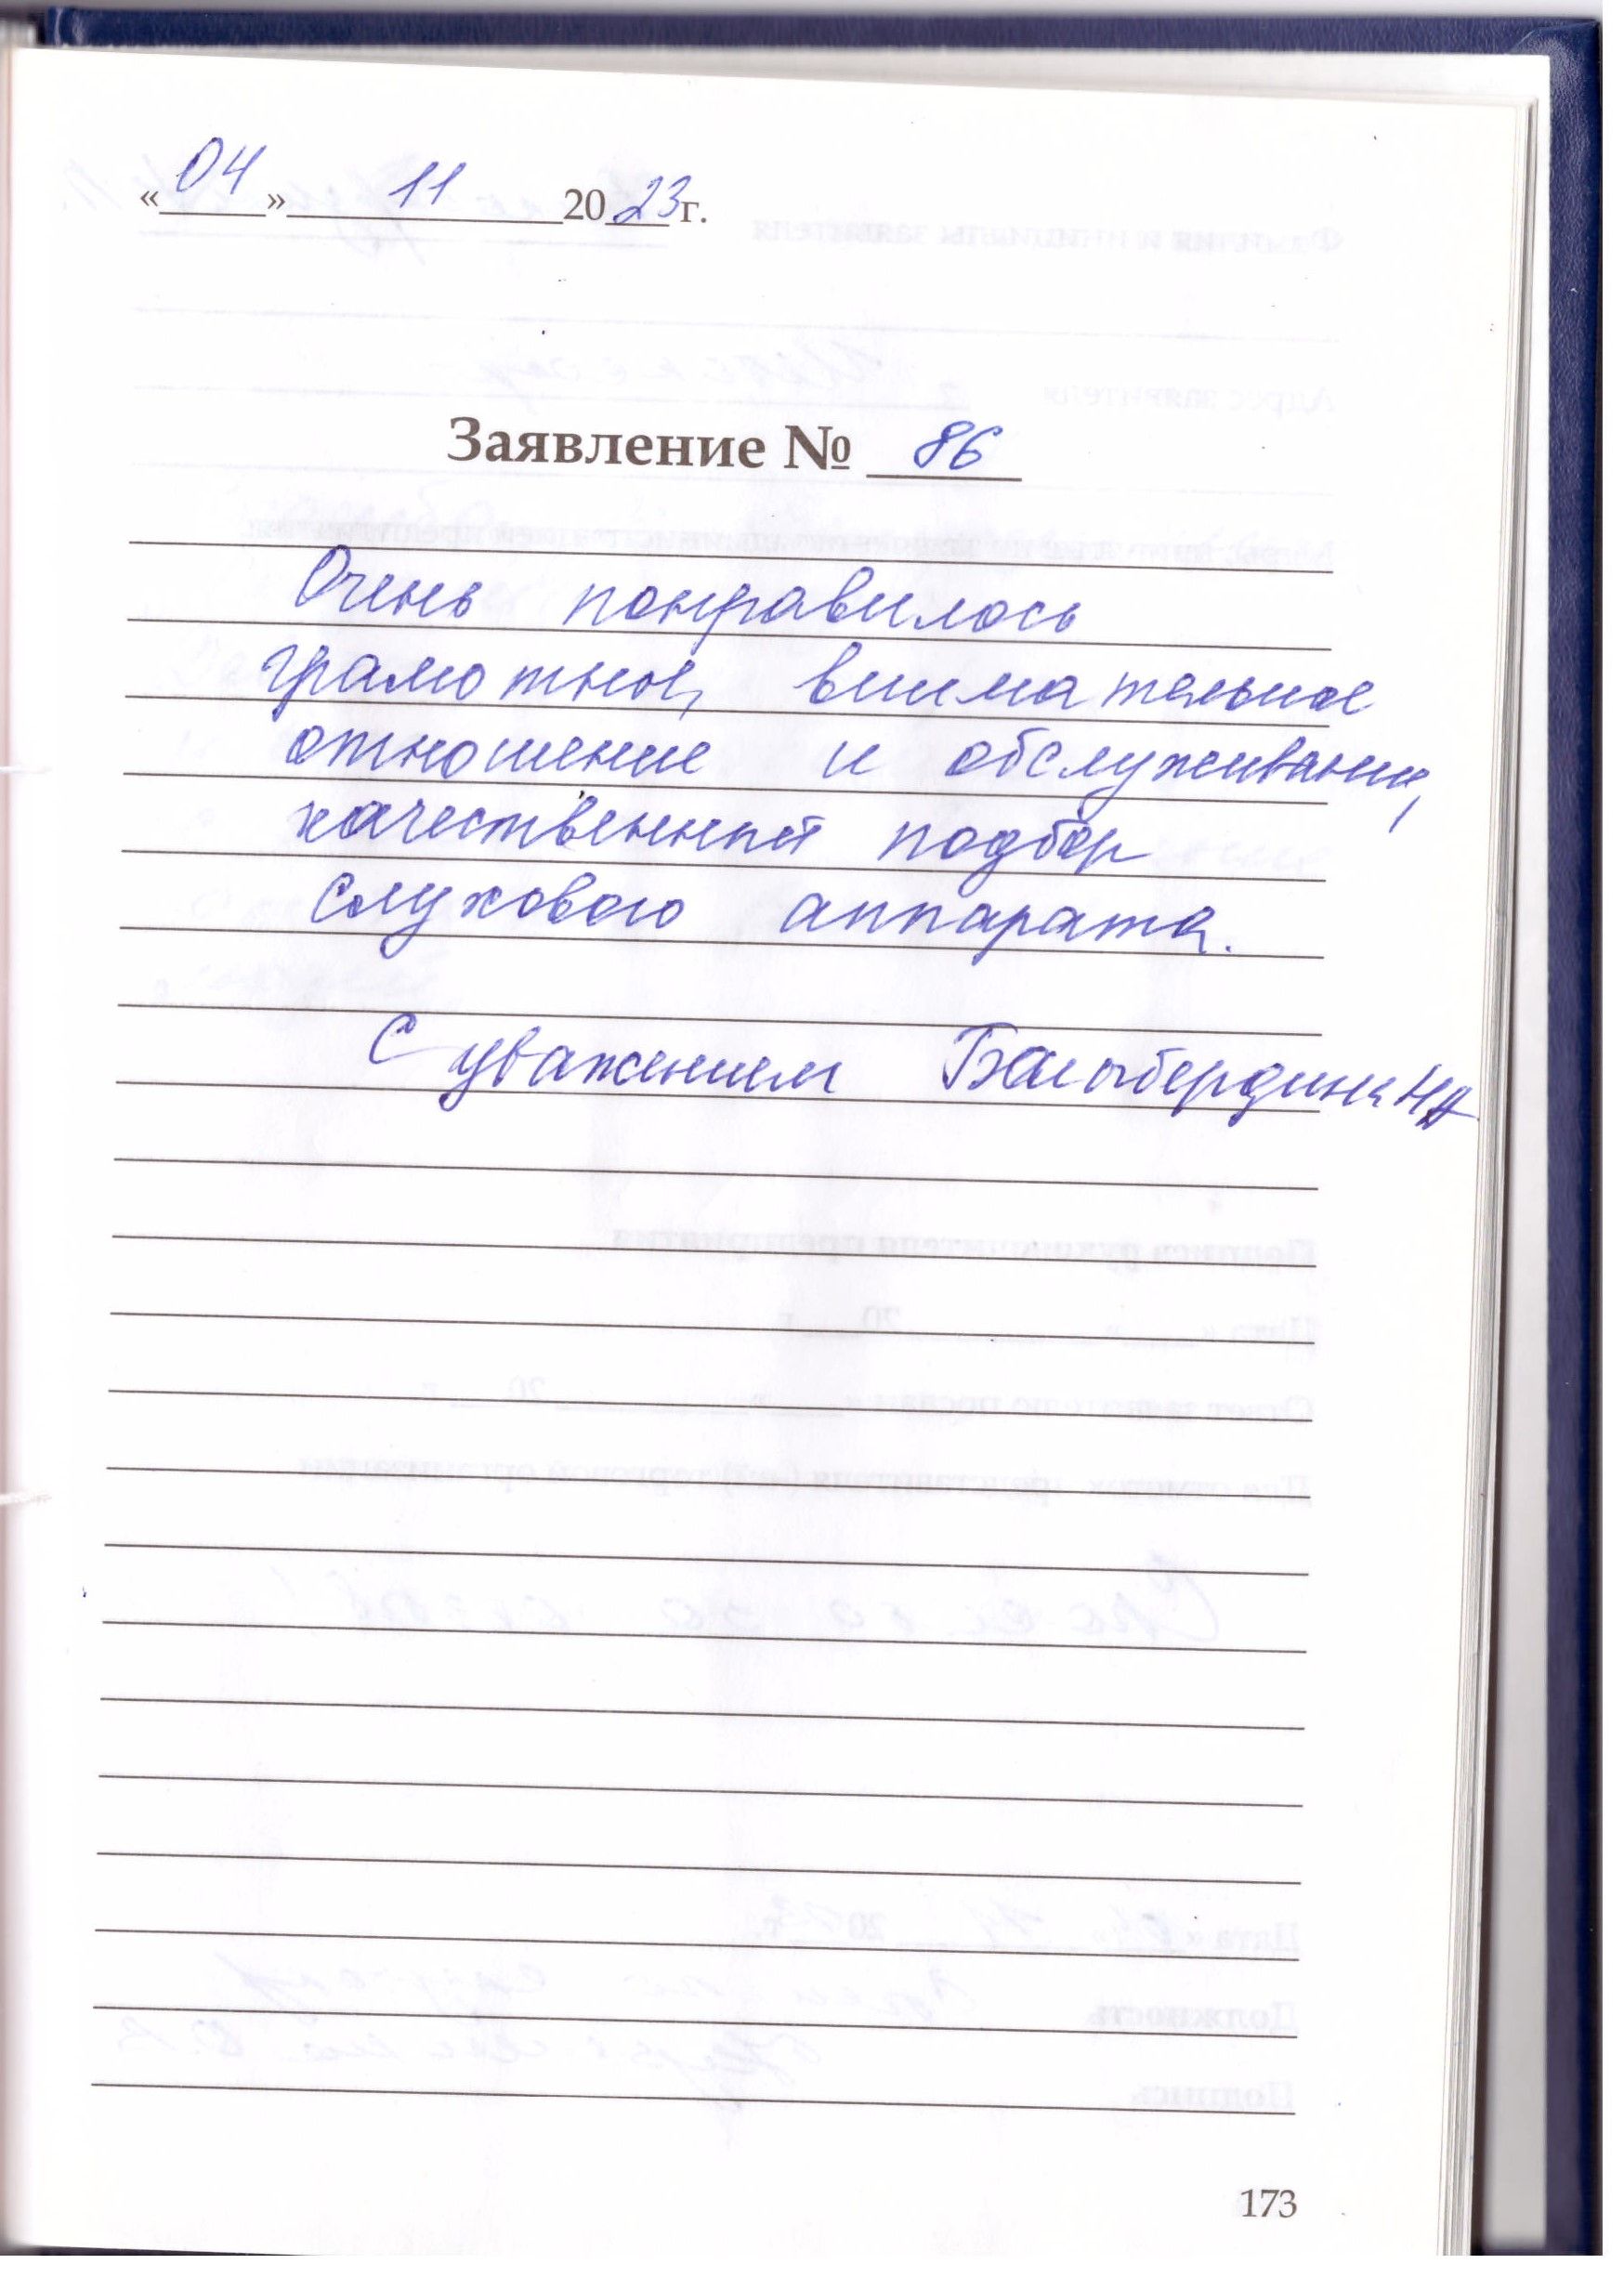 «04» 11 2023г.
Заявление № 86
Очень понравилось
грамотное, внимательное
отношение и обслуживание,
качественный подбор
слухового аппарата.
С уважением
173